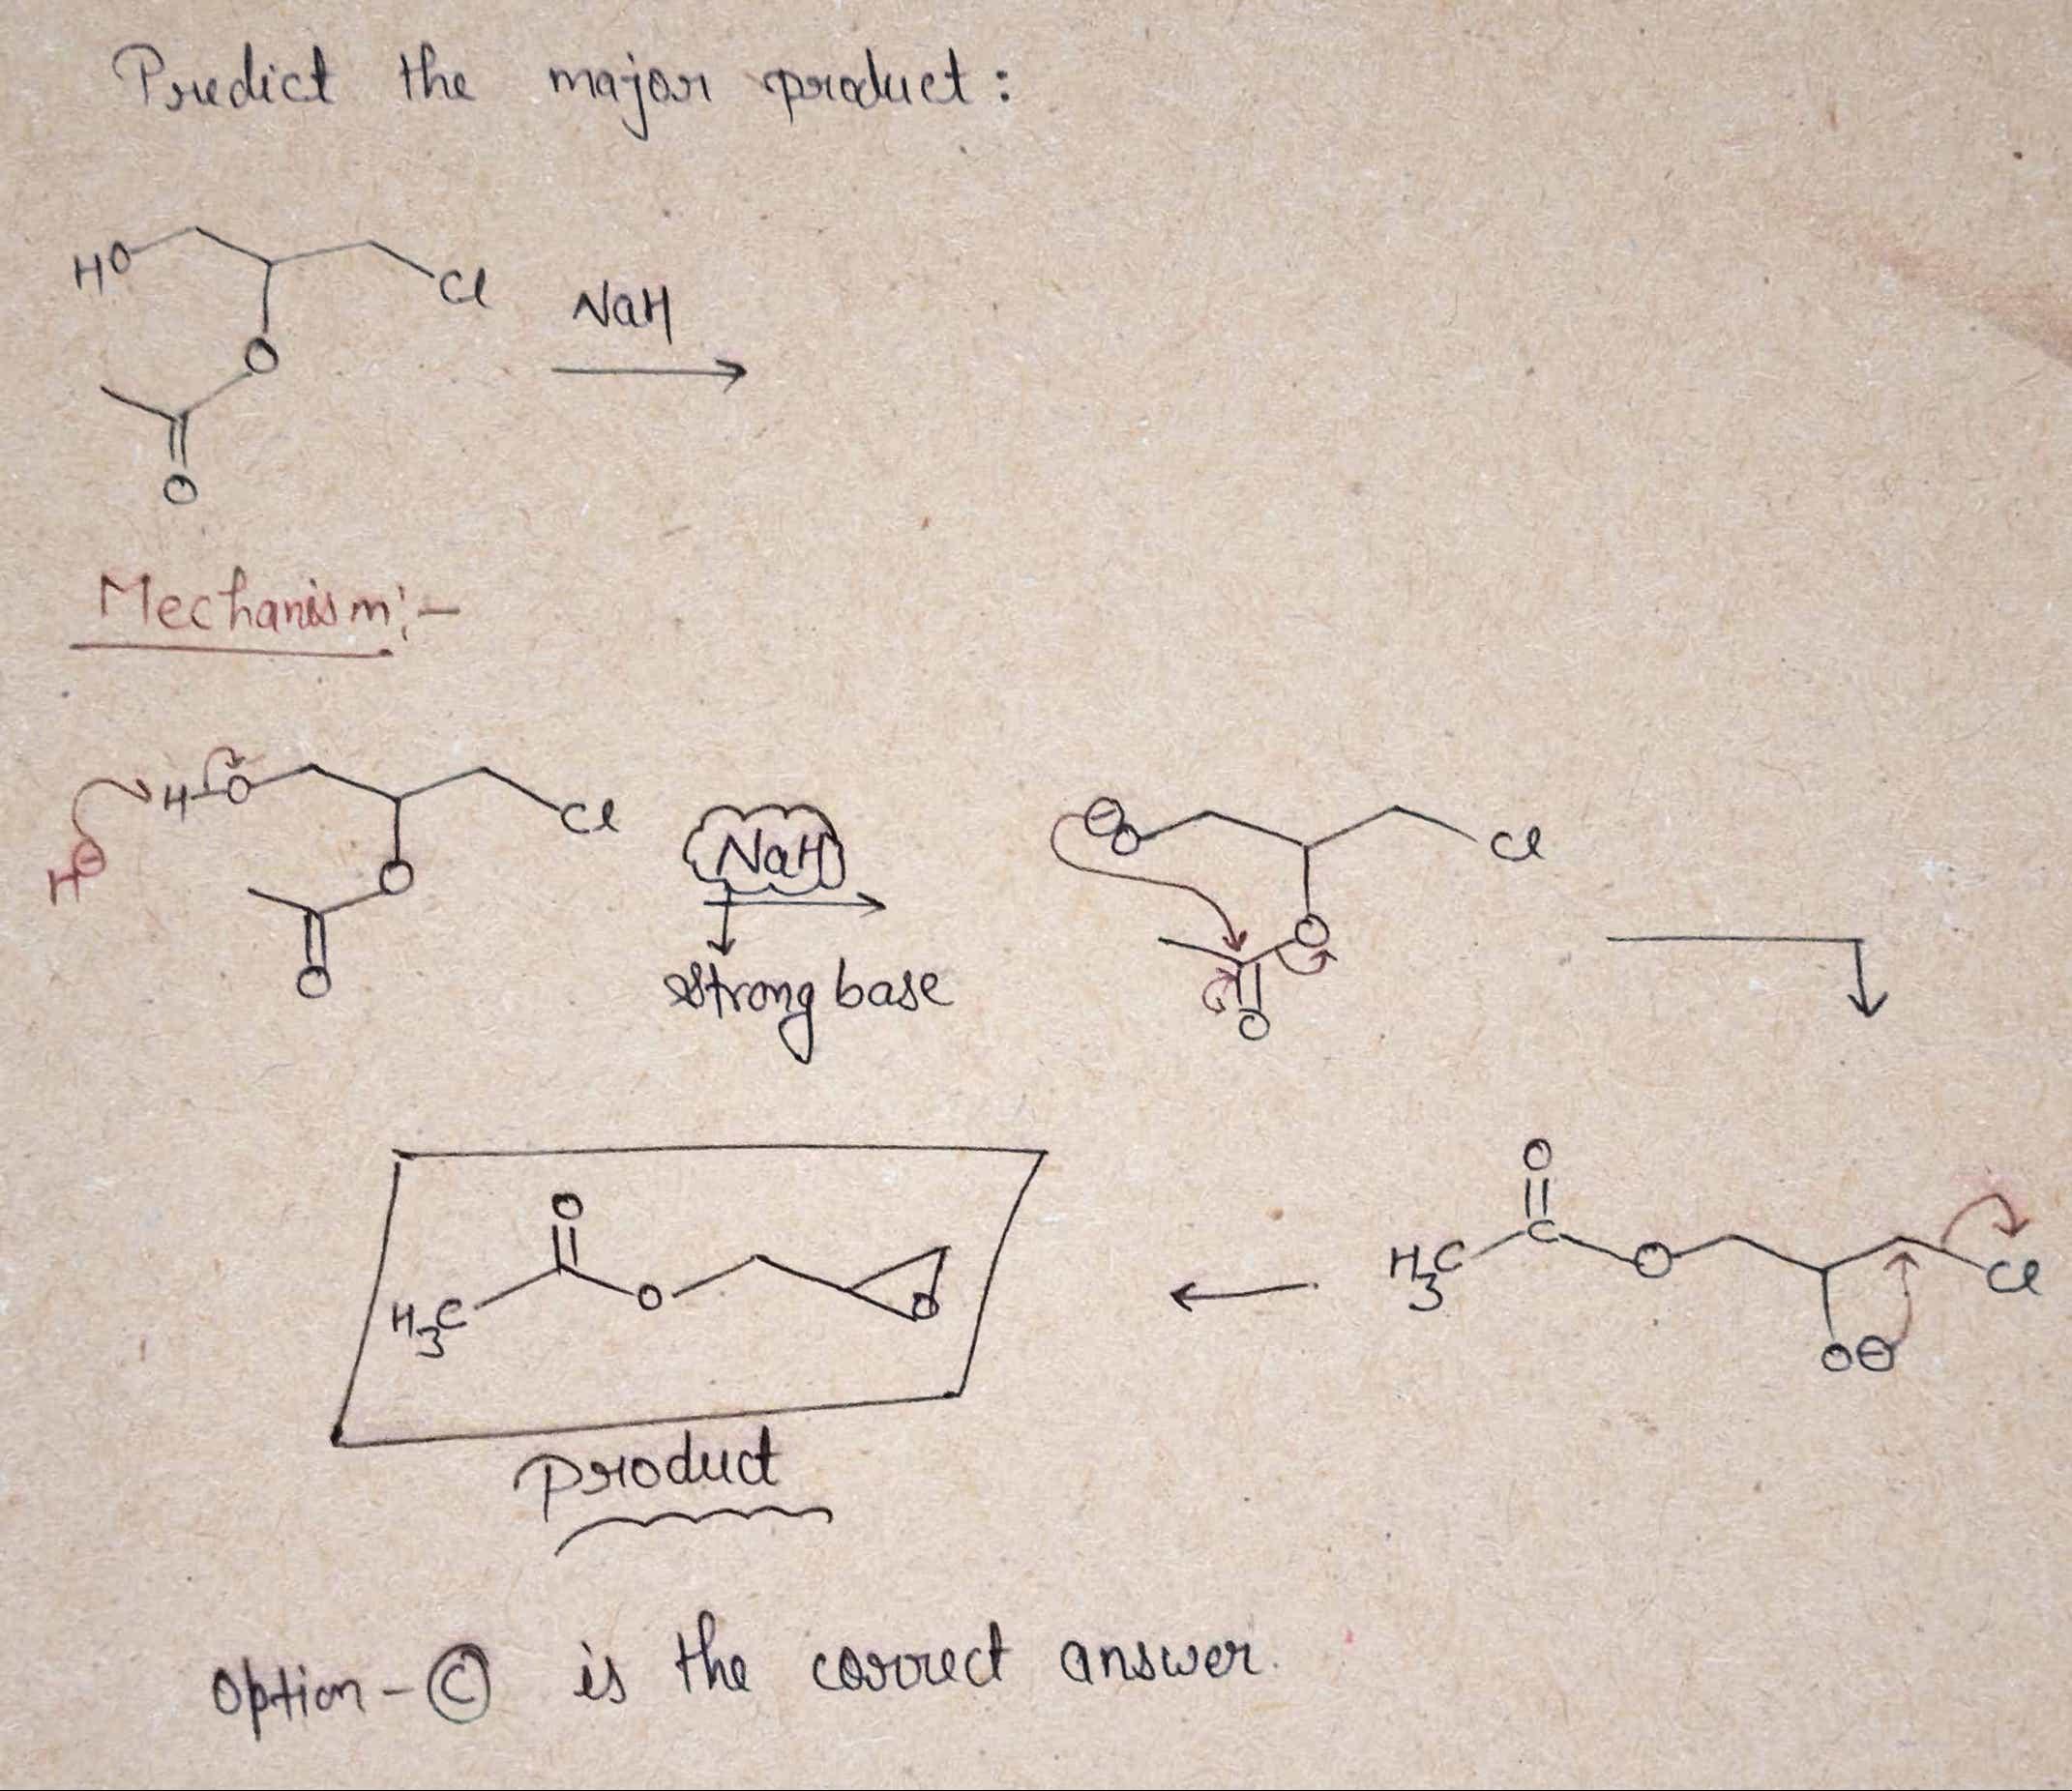 Predict the major product:
HO Cl
NaH
O
O
Mechanism:-
H⊖ H-O Cl
O
O
NaH
strong base
⊖O Cl
O
O
O
H3C C O Cl
O⊖
O
H3C O O
Product
Option-Ⓒ is the correct answer.